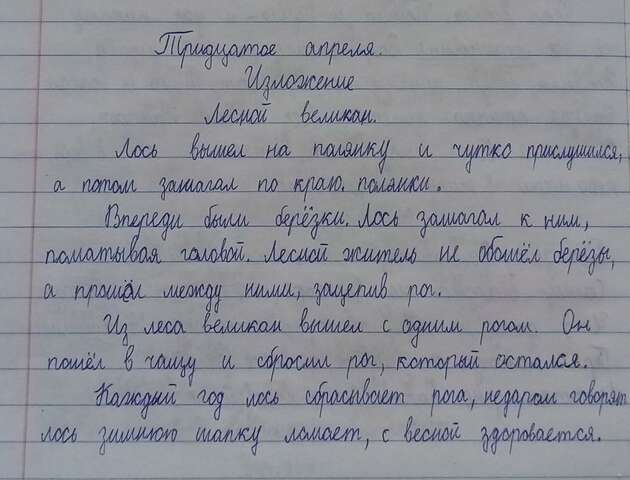 Тридцатое апреля.
Изложение
Лесной великан.
Лось вышел на полянку и чутко прислушился,
а потом зашагал по краю. полянки.
Впереди были берёзки. Лось зашагал к ним,
поматывая головой. Лесной житель не обошёл берёзы,
а прошёл между ними, зацепив рог.
Из леса великан вышел с одним рогом. Он
пошёл в чащу и сбросил рог, который остался.
Каждый год лось сбрасывает рога, недаром говорят
лось зимнюю шапку ломает, с весной здоровается.